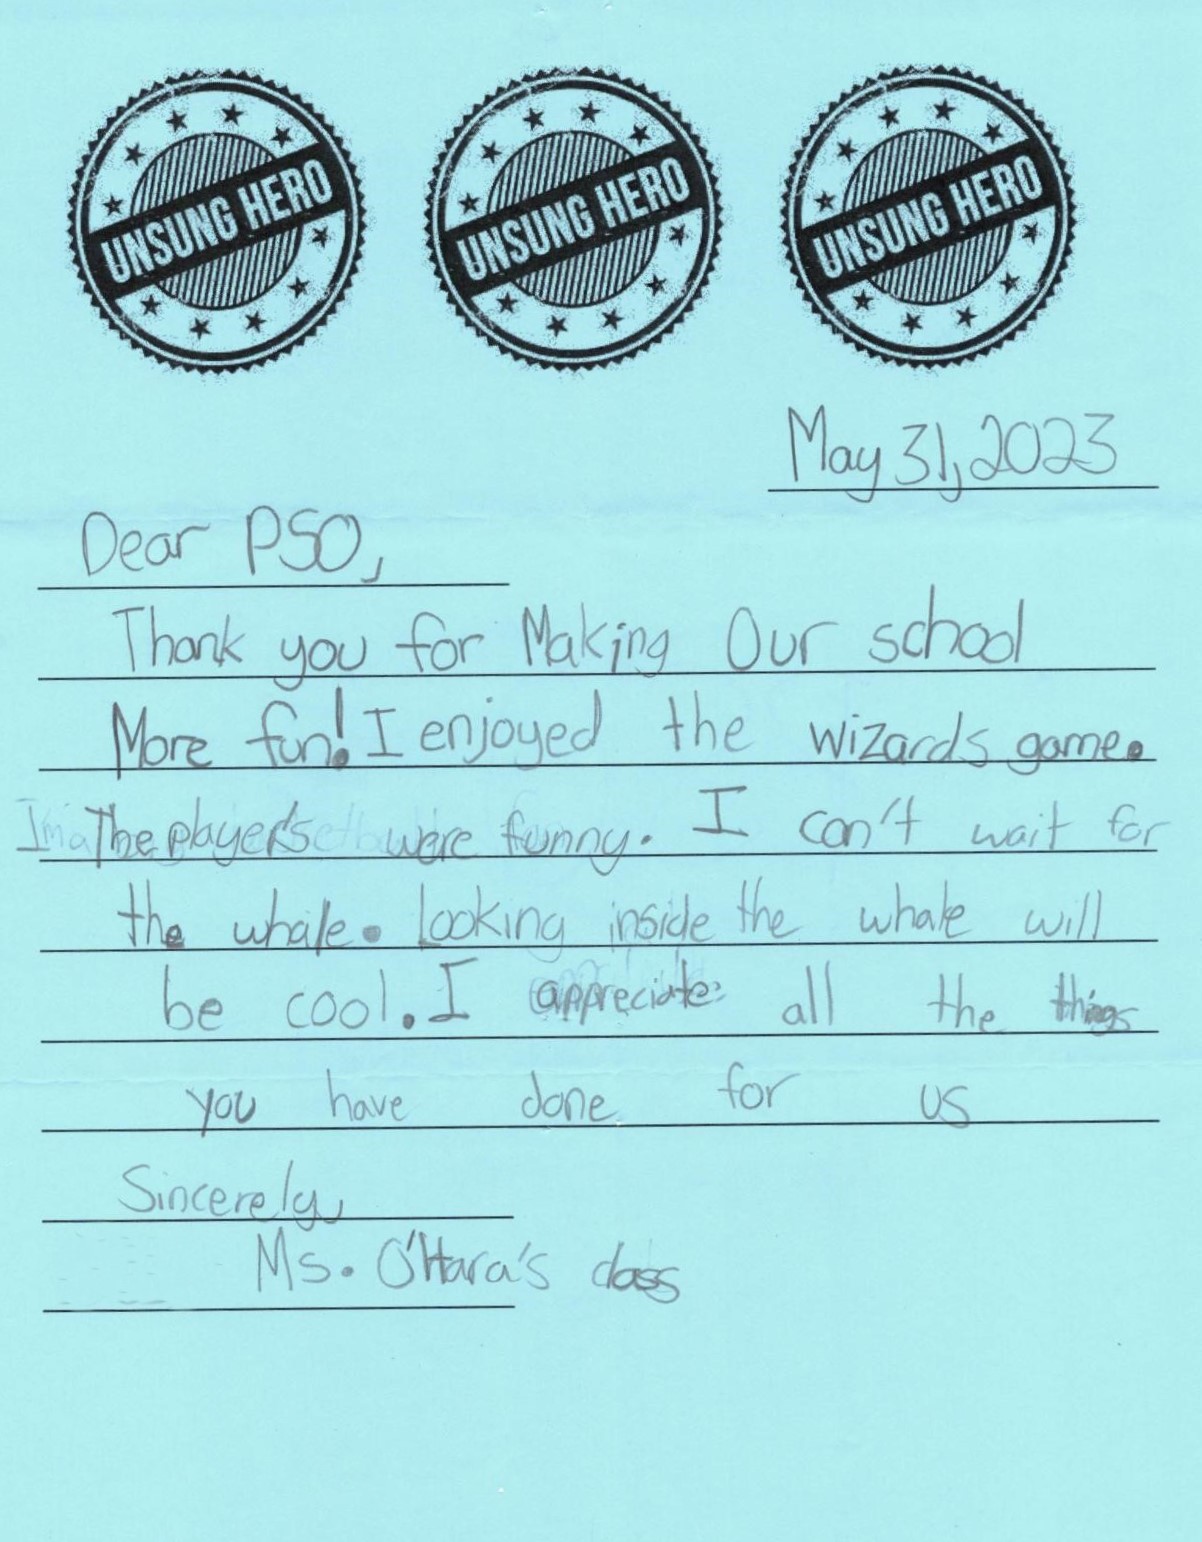 UNSUNG HERO UNSUNG HERO UNSUNG HERO
May 31, 2023
Dear PSO,
Thank you for Making Our school
More fun! I enjoyed the wizards game.
The players were funny. I can't wait for
the whale. Looking inside the whale will
be cool. I appreciate all the things
you have done for us
Sincerely,
Ms. O'Hara's class